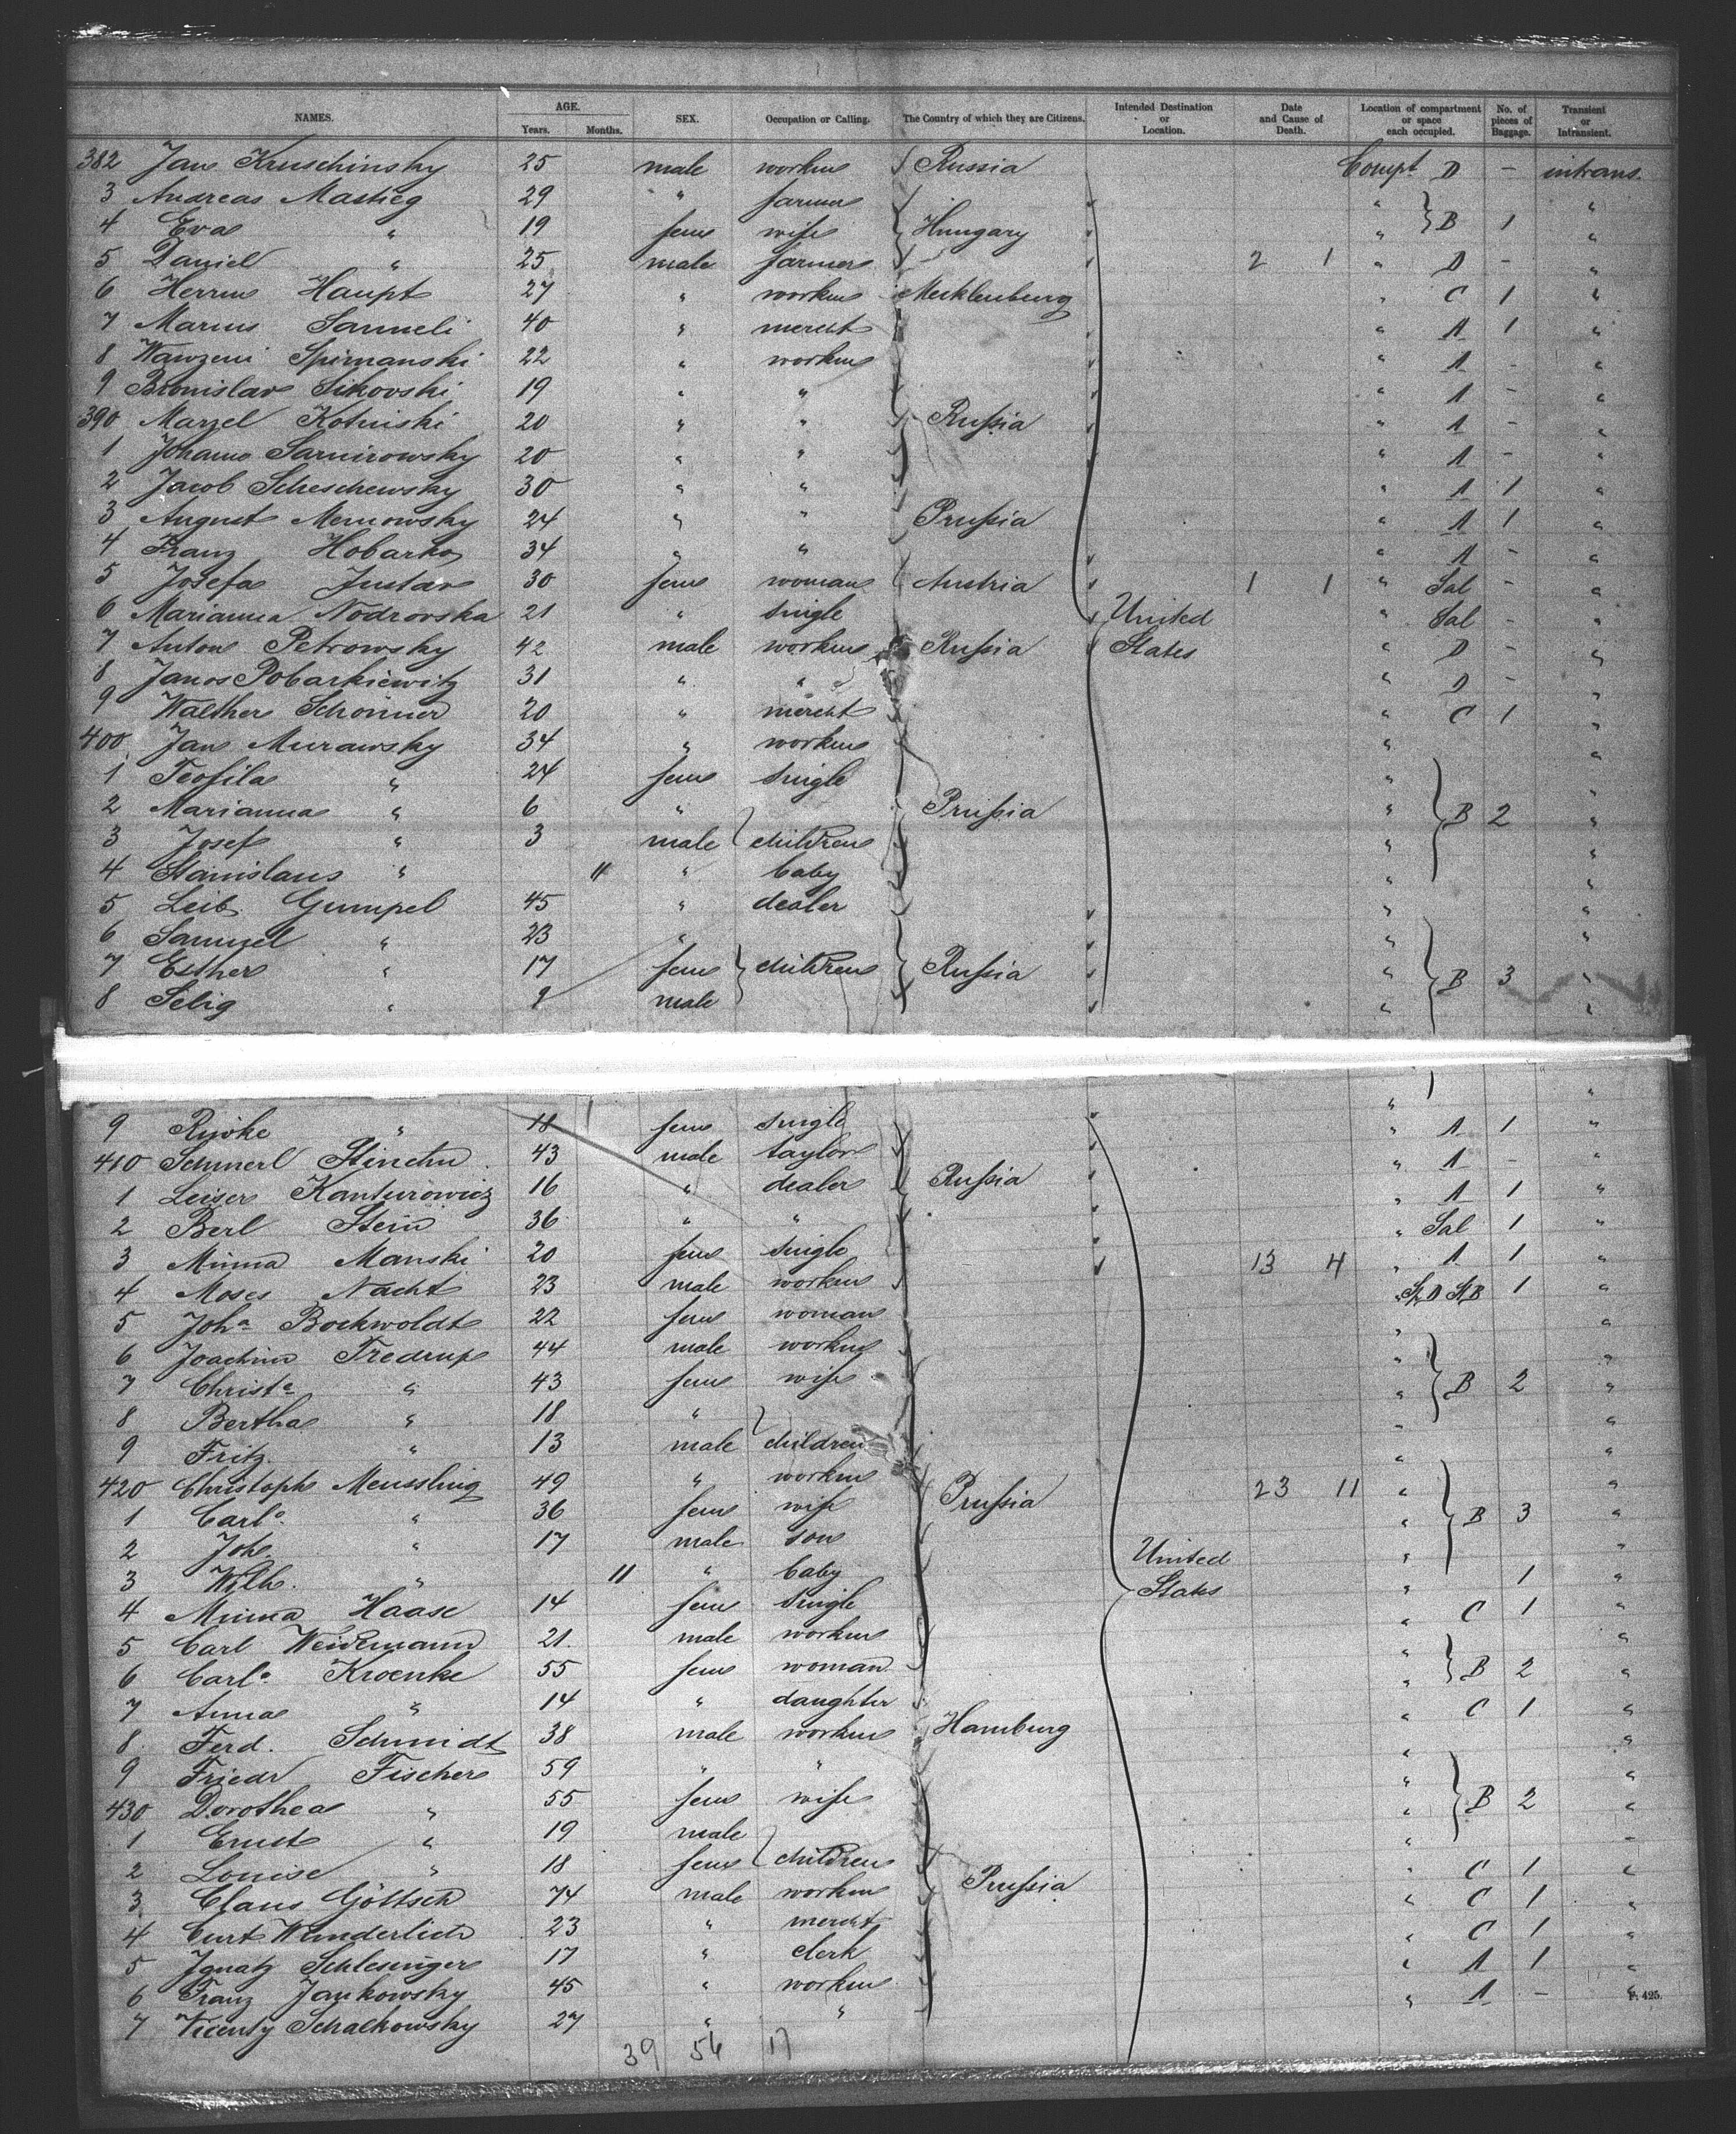 NAMES. AGE. Years. Months. SEX. Occupation or Calling. The Country of which they are Citizens. Intended Destination or Location. Date and Cause of Death. Location of compartment or space each occupied. No. of pieces of Baggage. Transient or Intransient.
382 Jan Kruschinsky 25 male worker Russia Compt D - intrans.
3 Andreas Mastieg 29 " farmer " "
4 Eva " 19 fem wife Hungary " B 1 "
5 Daniel " 25 male farmer 2 1 " D - "
6 Herrm Haupt 27 " worker Mecklenburg " C 1 "
7 Marius Samueli 40 " mercht " A 1 "
8 Wawzeni Spirmanski 22 " worker " A - "
9 Bronislav Sikovski 19 " " " A - "
390 Marzel Kotwiski 20 " " Russia " A - "
1 Johann Sarnirowsky 20 " " " A - "
2 Jacob Scheschewsky 30 " " " A 1 "
3 August Mernowsky 24 " " Prussia " A 1 "
4 Franz Hobarko 34 " " " A - "
5 Josefa Justav 30 fem woman Austria 1 1 " Sal - "
6 Marianna Nodrovska 21 " single United " Sal - "
7 Anton Petrowsky 42 male worker Russia States " D - "
8 Janos Pobarkiewitz 31 " " " D - "
9 Walther Schonner 20 " mercht " C 1 "
400 Jan Murawsky 34 " worker " "
1 Teofila " 24 fem single " "
2 Marianna " 6 " Prussia " B 2 "
3 Josef " 3 male children " "
4 Stanislaus " 11 " baby " "
5 Leib Gumpel 45 " dealer " "
6 Samuel " 23 " " "
7 Esther " 17 fem children Russia " B 3 "
8 Selig " 9 male " "
9 Riwke " 18 fem single " A 1 "
410 Schmerl 43 male taylor " A - "
1 Leiser Kanturowicz 16 " dealer Russia " A 1 "
2 Berl Stein 36 " " " Sal 1 "
3 Minna Manski 20 fem single 13 4 " A 1 "
4 Moses Nacht 23 male worker 1 "
5 Joha Bockwoldt 22 fem woman " "
6 Joachim Tredrup 44 male worker " "
7 Christa " 43 fem wife " B 2 "
8 Bertha " 18 " " "
9 Fritz " 13 male children " "
420 Christoph Meussling 49 " worker Prussia 23 11 " "
1 Carla " 36 fem wife " B 3 "
2 Joh. " 17 male son United " "
3 Wilh. " 11 " baby States " 1 "
4 Minna Haase 14 fem single " C 1 "
5 Carl Weidemann 21 male worker " "
6 Carla Kroenke 55 fem woman " B 2 "
7 Anna " 14 " daughter " C 1 "
8 Ferd. Schmidt 38 male worker Hamburg " "
9 Friedr Fischer 59 " " " "
430 Dorothea " 55 fem wife " B 2 "
1 Ernst " 19 male " "
2 Louise " 18 fem children " C 1 "
3 Claus Göttsch 74 male worker Prussia " C 1 "
4 Curt Wunderlich 23 " mercht " C 1 "
5 Ignatz Schlesinger 17 " clerk " A 1 "
6 Franz Jankowsky 45 " worker " A - "
7 Vicenty Schalkowsky 27 " "
39 56 17
F. 425.